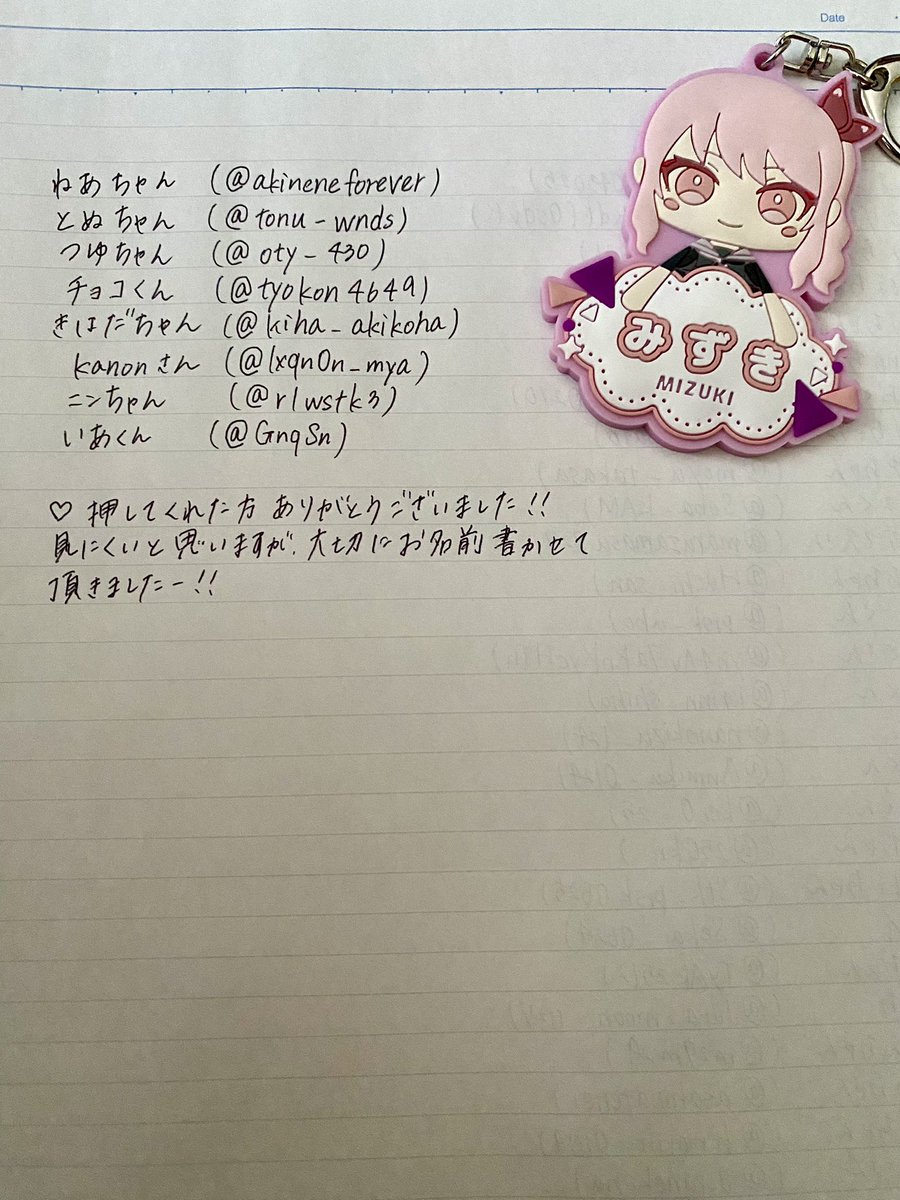 Date
ねあちゃん (@akineneforever)
とぬちゃん (@tonu-wnds)
つゆちゃん (@oty-430)
チョコくん (@tyokon4649)
きはだちゃん (@kiha_akikoha)
kanonさん (@lxqn0n_mya)
ニンちゃん (@r1wstk3)
いあくん (@GnqSn)
♡ 押してくれた方 ありがとうございました!!
見にくいと思いますが、大切にお名前書かせて
頂きましたー!!
みずき
MIZUKI